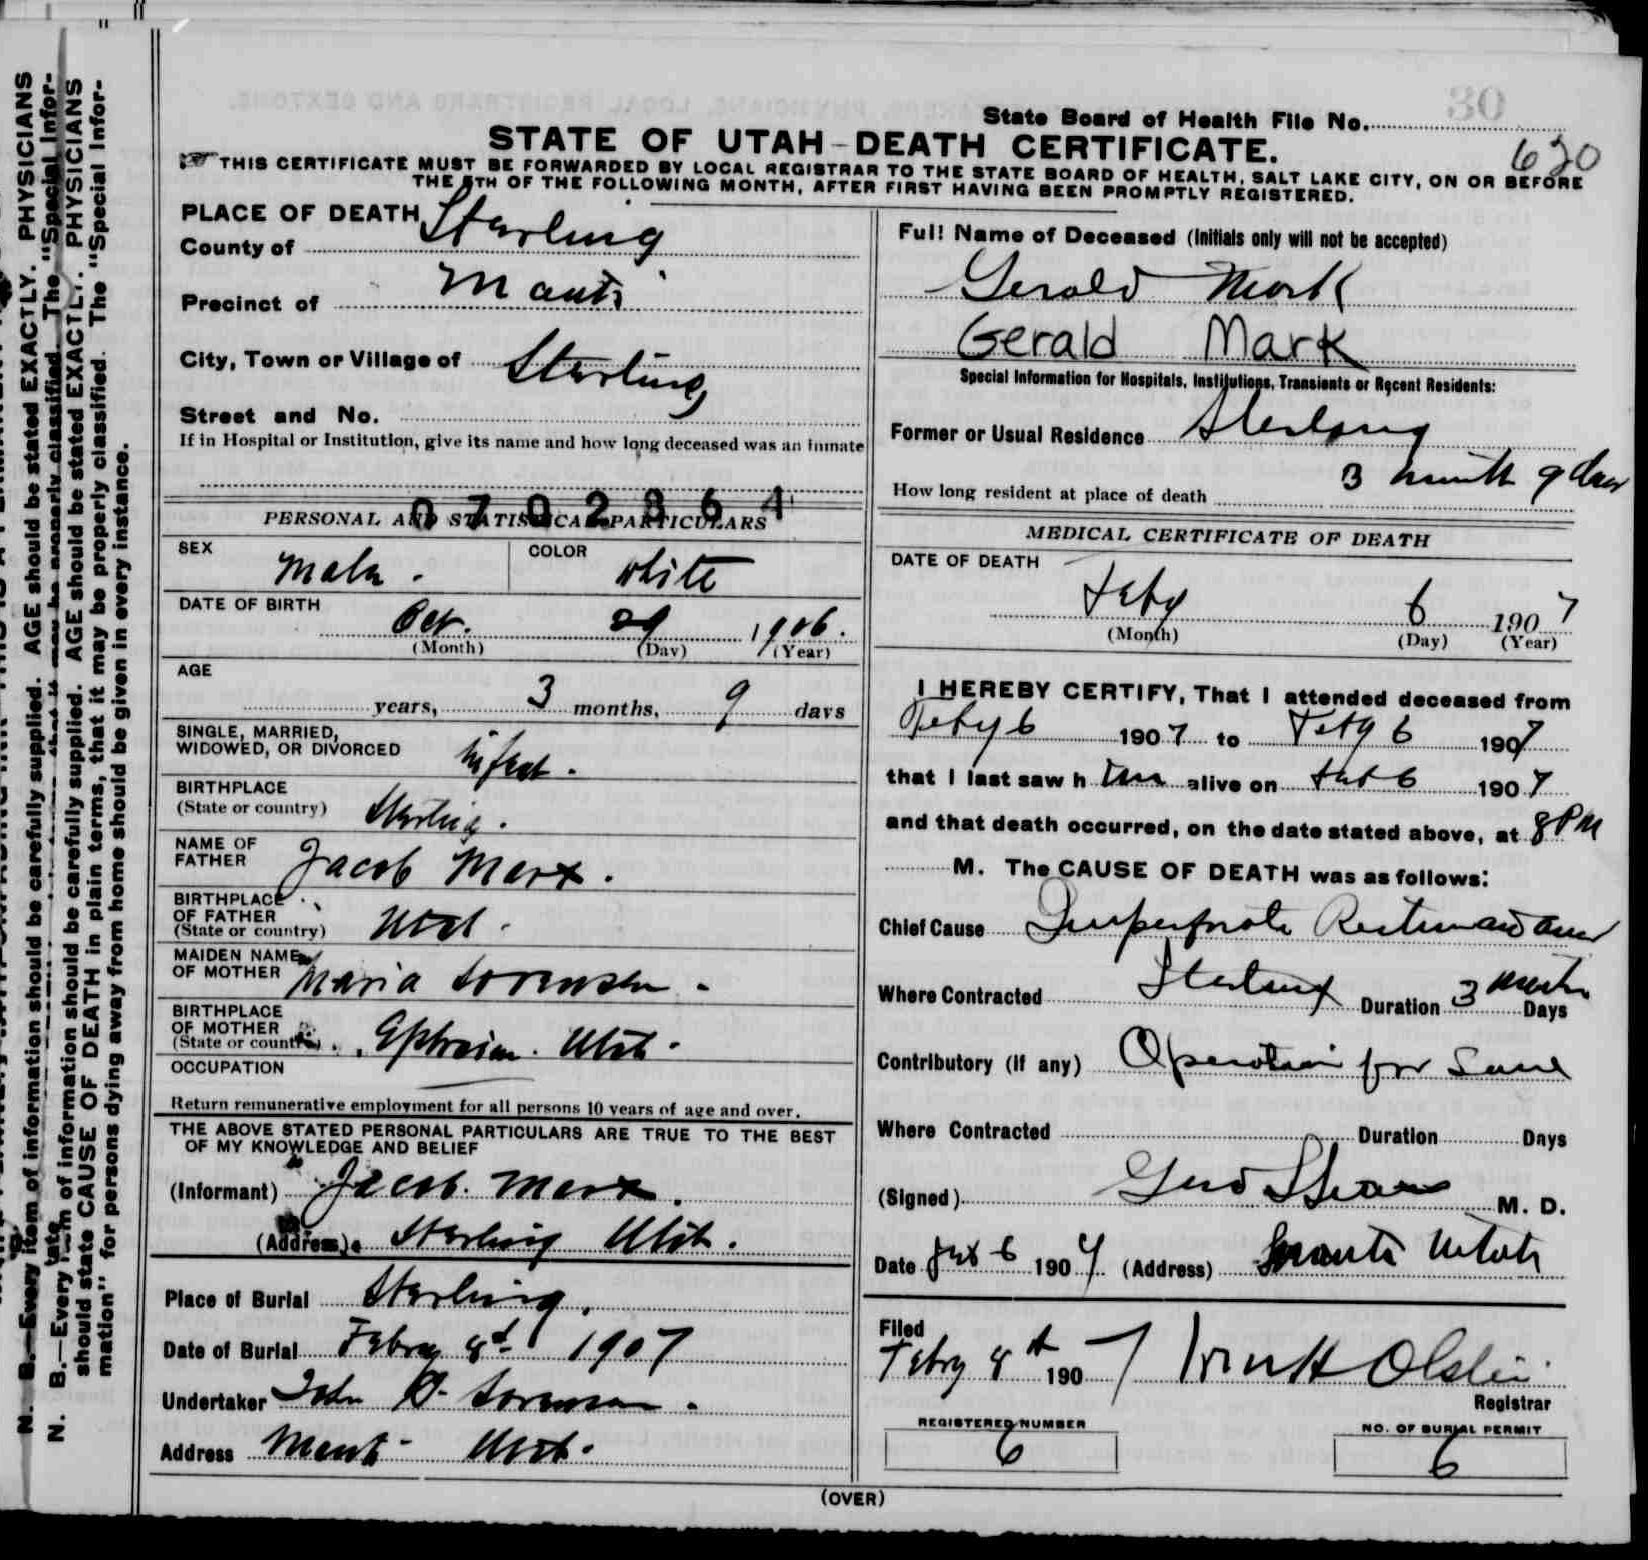 N. B.—Every item of information should be carefully supplied. AGE should be stated EXACTLY. PHYSICIANS
N. B.—Every item of information should be carefully supplied. AGE should be stated EXACTLY. PHYSICIANS
should state CAUSE OF DEATH in plain terms, that it may be properly classified. The "Special Infor-
mation" for persons dying away from home should be given in every instance.
30
State Board of Health File No.
620
STATE OF UTAH—DEATH CERTIFICATE.
THIS CERTIFICATE MUST BE FORWARDED BY LOCAL REGISTRAR TO THE STATE BOARD OF HEALTH, SALT LAKE CITY, ON OR BEFORE
THE 5TH OF THE FOLLOWING MONTH, AFTER FIRST HAVING BEEN PROMPTLY REGISTERED.
PLACE OF DEATH
County of Sterling
Precinct of Manti
City, Town or Village of Sterling
Street and No.
If in Hospital or Institution, give its name and how long deceased was an inmate
0702364
PERSONAL AND STATISTICAL PARTICULARS
SEX Male. COLOR white
DATE OF BIRTH
Oct. 29 1906.
(Month) (Day) (Year)
AGE
years, 3 months, 9 days
SINGLE, MARRIED,
WIDOWED, OR DIVORCED Infant.
BIRTHPLACE
(State or country) Sterling.
NAME OF
FATHER Jacob Marx.
BIRTHPLACE
OF FATHER
(State or country) Utah.
MAIDEN NAME
OF MOTHER Maria Sorensen.
BIRTHPLACE
OF MOTHER
(State or country) Ephraim. Utah.
OCCUPATION
Return remunerative employment for all persons 10 years of age and over.
THE ABOVE STATED PERSONAL PARTICULARS ARE TRUE TO THE BEST
OF MY KNOWLEDGE AND BELIEF
(Informant) Jacob Marx.
(Address) Sterling Utah.
Place of Burial Sterling.
Date of Burial Febry 8th 1907
Undertaker John Sorensen.
Address Manti Utah.
Full Name of Deceased (Initials only will not be accepted)
Gerald Mark
Gerald Mark
Special Information for Hospitals, Institutions, Transients or Recent Residents:
Former or Usual Residence Sterling
How long resident at place of death 3 month 9 days
MEDICAL CERTIFICATE OF DEATH
DATE OF DEATH
Feby 6 1907
(Month) (Day) (Year)
I HEREBY CERTIFY, That I attended deceased from
Feby 6 1907 to Feby 6 1907
that I last saw him alive on Feb 6 1907
and that death occurred, on the date stated above, at 8 PM
M. The CAUSE OF DEATH was as follows:
Chief Cause Imperforate Rectum and anus
Where Contracted Sterling Duration 3 months Days
Contributory (if any) Operation for Same
Where Contracted Duration Days
(Signed) M. D.
Date Feb 6 1907 (Address) Manti Utah
Filed
Febry 8th 1907 Registrar
REGISTERED NUMBER
6
NO. OF BURIAL PERMIT
6
(OVER)